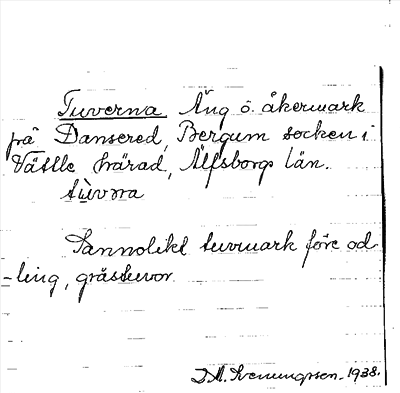 Tuverna Äng o. åkermark
frå Dansered, Bergum socken i
Vättle härad, Älfsborgs län.
tùvɷrna
Sannolikt tuvmark före od-
-ling, grästuvor.
J.M. Svenungsson. 1938.